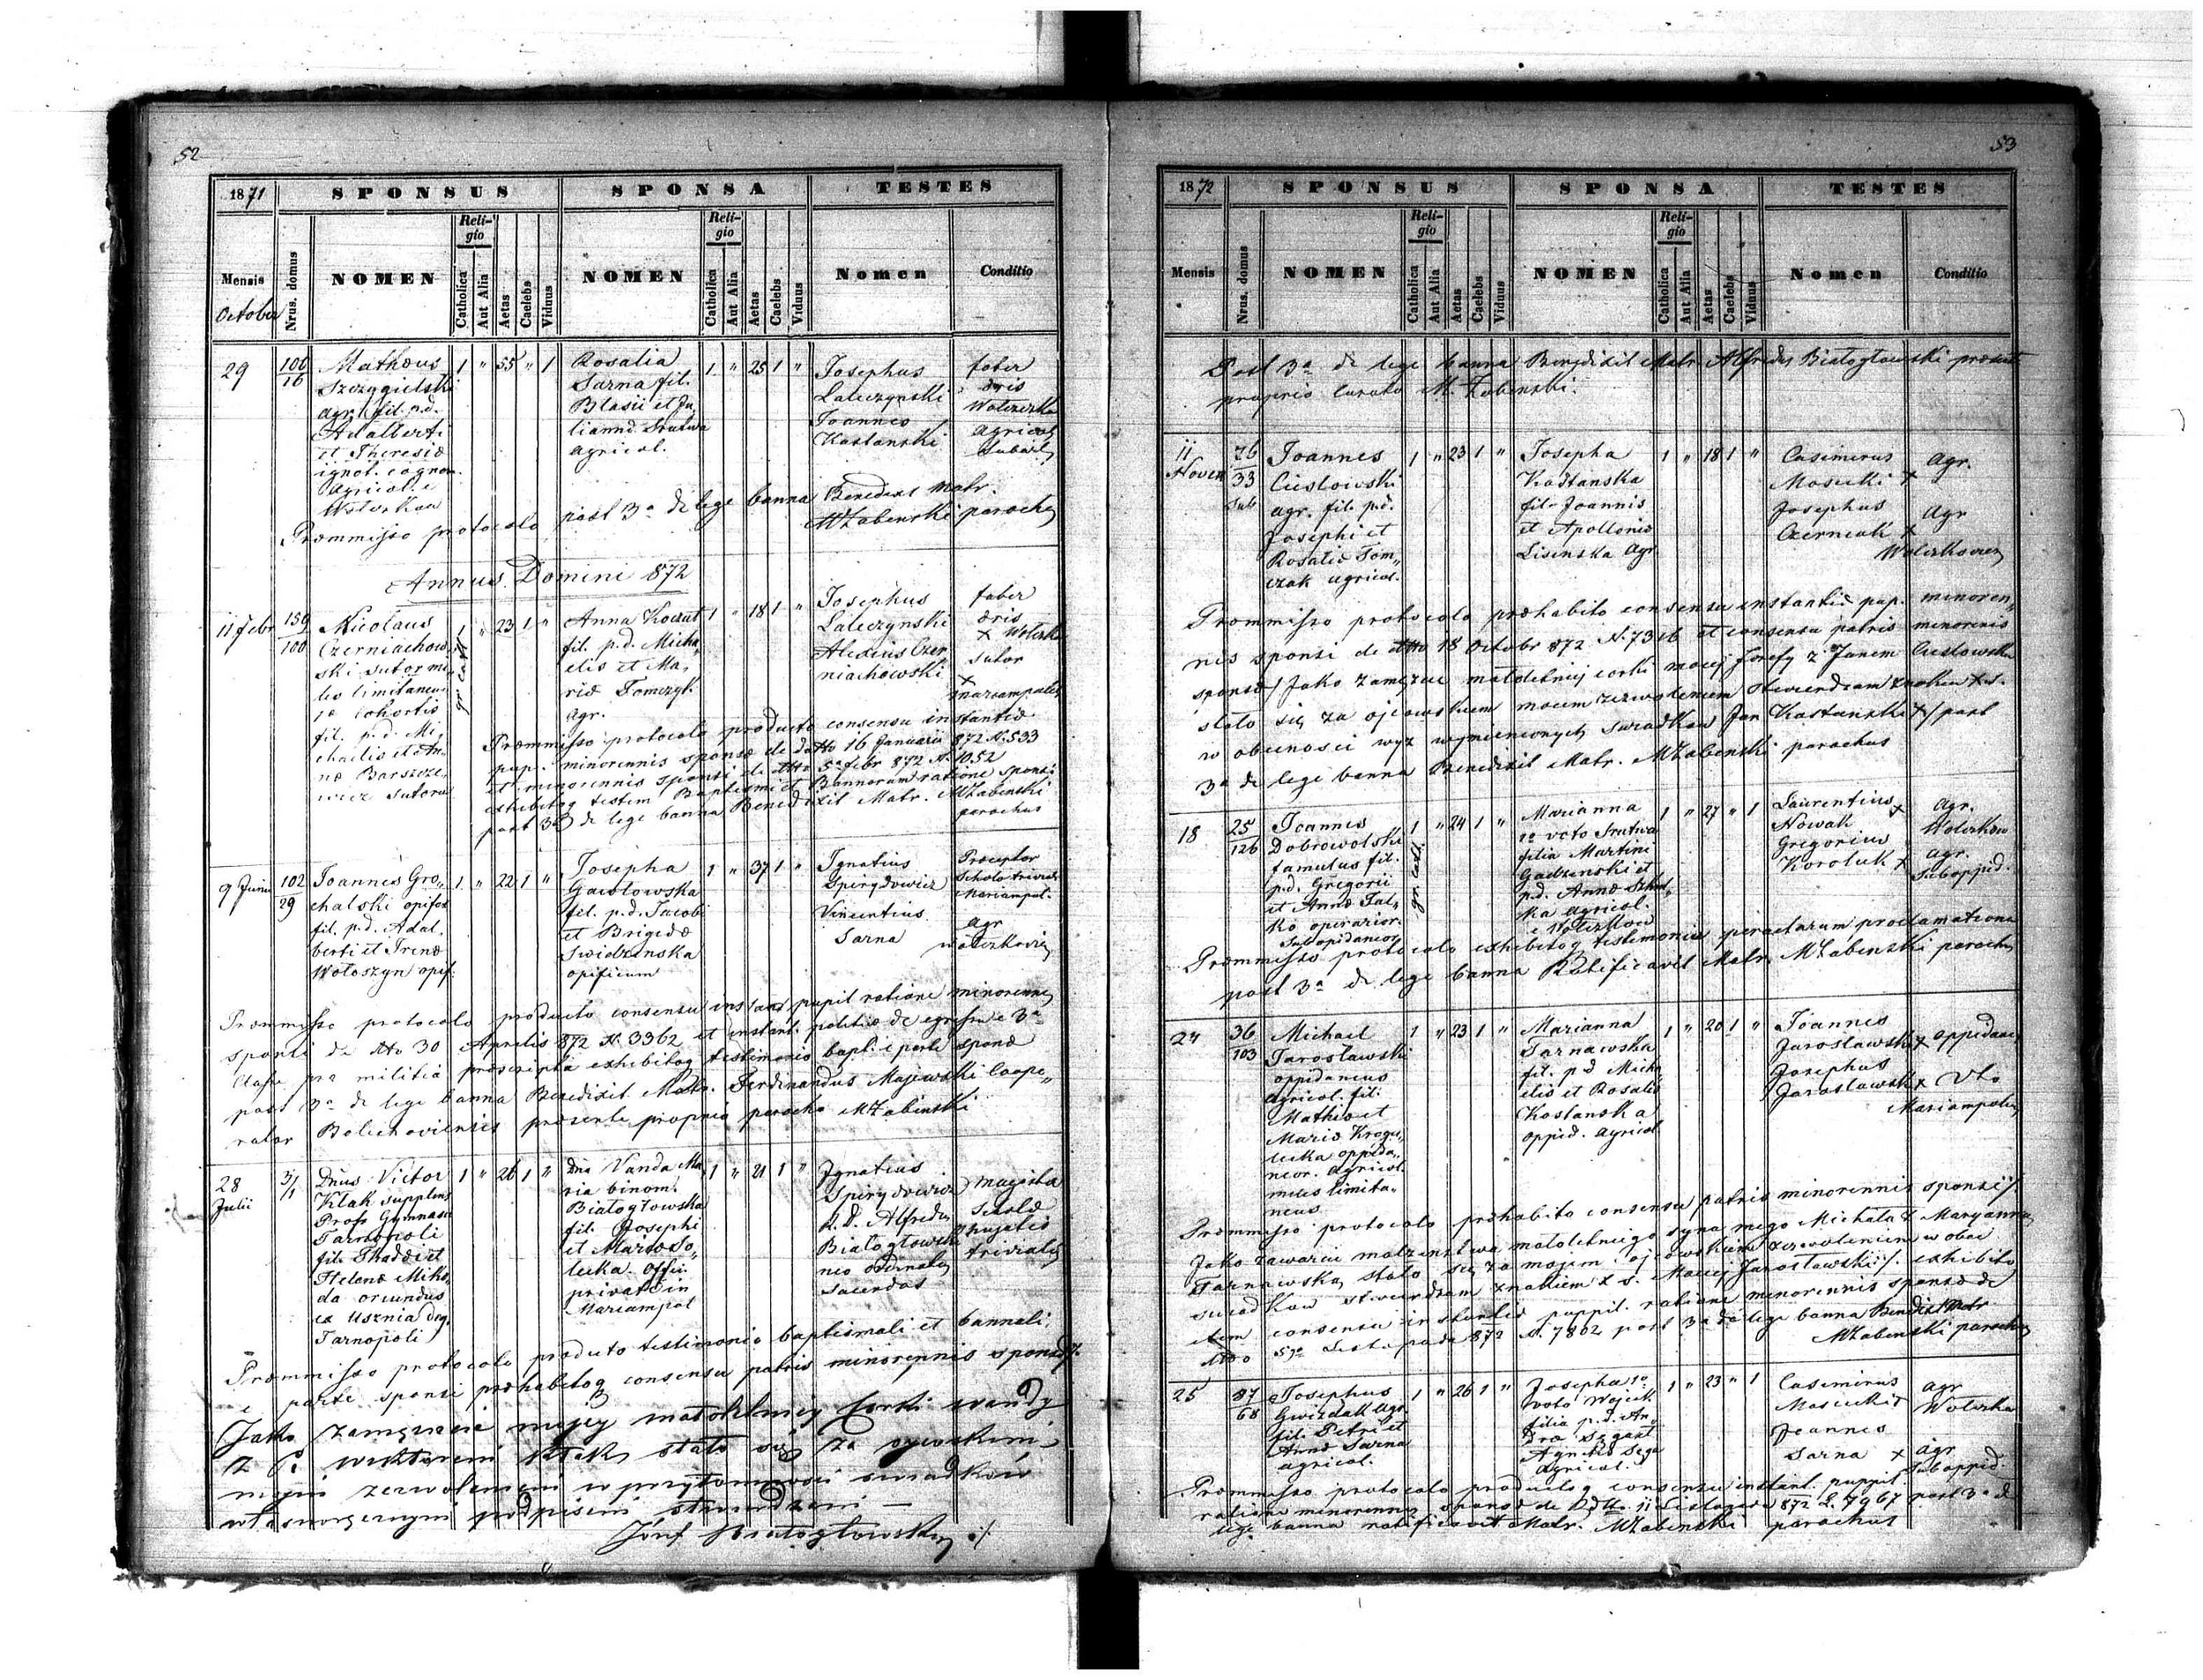 52
1871
SPONSUS
SPONSA
TESTES
Mensis
October
Nrus. domus
NOMEN
Religio
Catholica
Aut Alia
Aetas
Caelebs
Viduus
NOMEN
Religio
Catholica
Aut Alia
Aetas
Caelebs
Viduus
Nomen
Conditio
29
106
16
Mathæus
Szczygielski
agr. fil. p.d.
Adalberti
et Theresiæ
ignot. cognom.
Agricol. e
1 " 55 " 1
Rosalia
Sarna fil.
Blasii et Ju
liannæ Srutwa
agricol.
1 " 25 1 "
Josephus
Laleczynski
Joannes
Kastanski
faber
Agricol
Præmisso protocolo post 3a de lege banna Benedixit Matr.
MZabenski parochus
Annus Domini 872
11 Febr
159
100
Nicolaus
Czerniachow
ski sutor mi
les limitaneus
1æ Cohortis
fil. p.d. Mi
chaelis et An
næ Barszcze
wicz sutorum
1 " 23 1 "
gr. cath.
Anna Koczut
fil. p.d. Micha
elis et Ma
riæ Tomczyk
Agr.
1 " 18 1 "
Josephus
Laleczynski
Alexius Czer
niachowski
faber
sutor
x
Mariampolis
Præmisso protocolo producto consensu instantiæ
pup. minorennis sponsæ de dtto 16 Januarii 872 N. 533
et minorennis sponsi de dtto 5a Febr 872 N. 1052
exhibitoq testim Baptismi et Bannorum ratione sponsi
post 3a de lege banna Benedixit Matr. MZabenski
parochus
9 Junii
102
29
Joannes Gro
chalski opifex
fil. p.d. Adal
berti et Irenæ
Wołoszyn opif.
1 " 22 1 "
Josepha
Gawłowska
fil. p.d. Jacobi
et Brigidæ
Swidzinska
opificum
1 " 37 1 "
Ignatius
Spirydowicz
Vincentius
Sarna
Præceptor
Scholæ trivial
Mariampol.
Agr
Præmisso protocolo producto consensu instant pupil ratione minorennis
sponsi de dtto 30 Aprilis 872 N. 3362 et instant. politicæ de egressu e 3a
Classe pro militia præscripta exhibitoq testimonio bapt. e parte sponsæ
post 3a de lege banna Benedixit Matr. Ferdinandus Majewski Coope
rator Bolechoviensis præsente proprio parocho MZabinski
28
Julii
3/1
Dnus Victor
Kłak supplens
Profs Gymnasii
Tarnopoli
fil. Thaddei et
Helenæ Miko
da oriundus
ex Usznia deg.
Tarnopoli
1 " 26 1 "
Dna Vanda Ma
ria binom.
Białogłowska
fil. Josephi
et Mariæ So
lecka Offic.
privat. in
Mariampol
1 " 21 1 "
Ignatius
Spirydowicz
R.D. Alfredus
Białogłowski
neo ordinatus
Sacerdos
Magister
Scholæ
hujatis
trivialis
Præmisso protocolo producto testimonio baptismali et bannali
e parte sponsi præhabitoq consensu patris minorennis sponsæ /.
Jako zamęzcie mojej małoletniej Corki Wandy
z P. Wiktorem Kłak stało się za oycowskim
moim zezwoleniem w przytomnosci swiadków
własnoręcznym podpisem stwierdzam —
Józef Białogłowski ./.
53
1872
SPONSUS
SPONSA
TESTES
Mensis
Nrus. domus
NOMEN
Religio
Catholica
Aut Alia
Aetas
Caelebs
Viduus
NOMEN
Religio
Catholica
Aut Alia
Aetas
Caelebs
Viduus
Nomen
Conditio
Post 3a de lege banna Benedixit Matr. Alfredus Białogłowski præsente
proprio Curato M. Zabenski.
11
Novem
76
33
Sub
Joannes
Cieslowski
agr. fil. p.d.
Josephi et
Rosaliæ Tom
czak agricol.
1 " 23 1 "
Josepha
Kastanska
fil. Joannis
et Apolloniæ
Lisinska Agr
1 " 18 1 "
Casimirus
Mosucki x
Josephus
Czerniak x
Agr.
Agr
Præmisso protocolo præhabito consensu instantiæ pup. minoren
nis sponsi de dtto 18 Octobr 872 N. 7316 et consensu patris minorenis
sponsæ / Jako zamęzcie małoletniej corki mojej Jozefy z Janem Cieslowskim
stało się za ojcowskiem mocem zezwoleniem stwierdzam znakiem x s.
w obecnosci wyz wymienionych swiadków Jan Kastanski x / post
3a de lege banna Benedixit Matr. MZabenski parochus
18
25
126
Joannes
Dobrowolski
famulus fil.
p.d. Gregorii
et Annæ Fal
ko operarior.
1 " 24 1 "
gr. cath.
Marianna
1o voto Srutwa
filia Martini
p.d. Annæ
agricol.
1 " 27 " 1
Laurentius x
Nowak
Gregorius
Koroluk x
Agr.
agr.
Suboppid.
Præmisso protocolo exhibitoq testimonio peractarum proclamationum
post 3a de lege banna Ratificavit Matr. MZabenski parochus
24
36
103
Michael
Jarosławski
oppidaneus
agricol. fil.
Mathiæ et
Mariæ Krogu
lecka oppida
neor. agricol.
miles limita
neus
1 " 23 1 "
Marianna
Tarnawska
fil. p.d Micha
elis et Rosaliæ
Kostanska
oppid. agricol
1 " 20 1 "
Joannes
Jarosławski x
Josephus
Jarosławski x
oppidanei
dto
Mariampolis
Præmisso protocolo præhabito consensu patris minorennis sponsi /.
Jako zawarcie malzenstwa małoletniego syna mego Michała z Maryanną
Tarnawską stało się za mojem ojcowskiem zezwoleniem w obec
swiadkow stwierdzam znakiem x s. Maciej Jarosławski /. exhibito
item consensu instantiæ puppil. ratione minorennis sponsæ de
dtto 5go Listopada 872 N. 7802 post 3a de lege banna Benedixit Matr.
MZabenski parochus
25
87
68
Josephus
Gwizdak agr.
fil. Petri et
Annæ Sarna
agricol.
1 " 26 1 "
Josepha 1o
voto Wojcik
filia p.d. An
Agricol.
1 " 23 " 1
Casimirus
Mosucki x
Joannes
Sarna x
agr
agr
Suboppid.
Præmisso protocolo productoq consensu instant. puppil
ratione minorennis sponsæ de dtto 11 Listopada 872 L. 7967 post 3a de
lege banna ratificavit Matr. MZabenski parochus